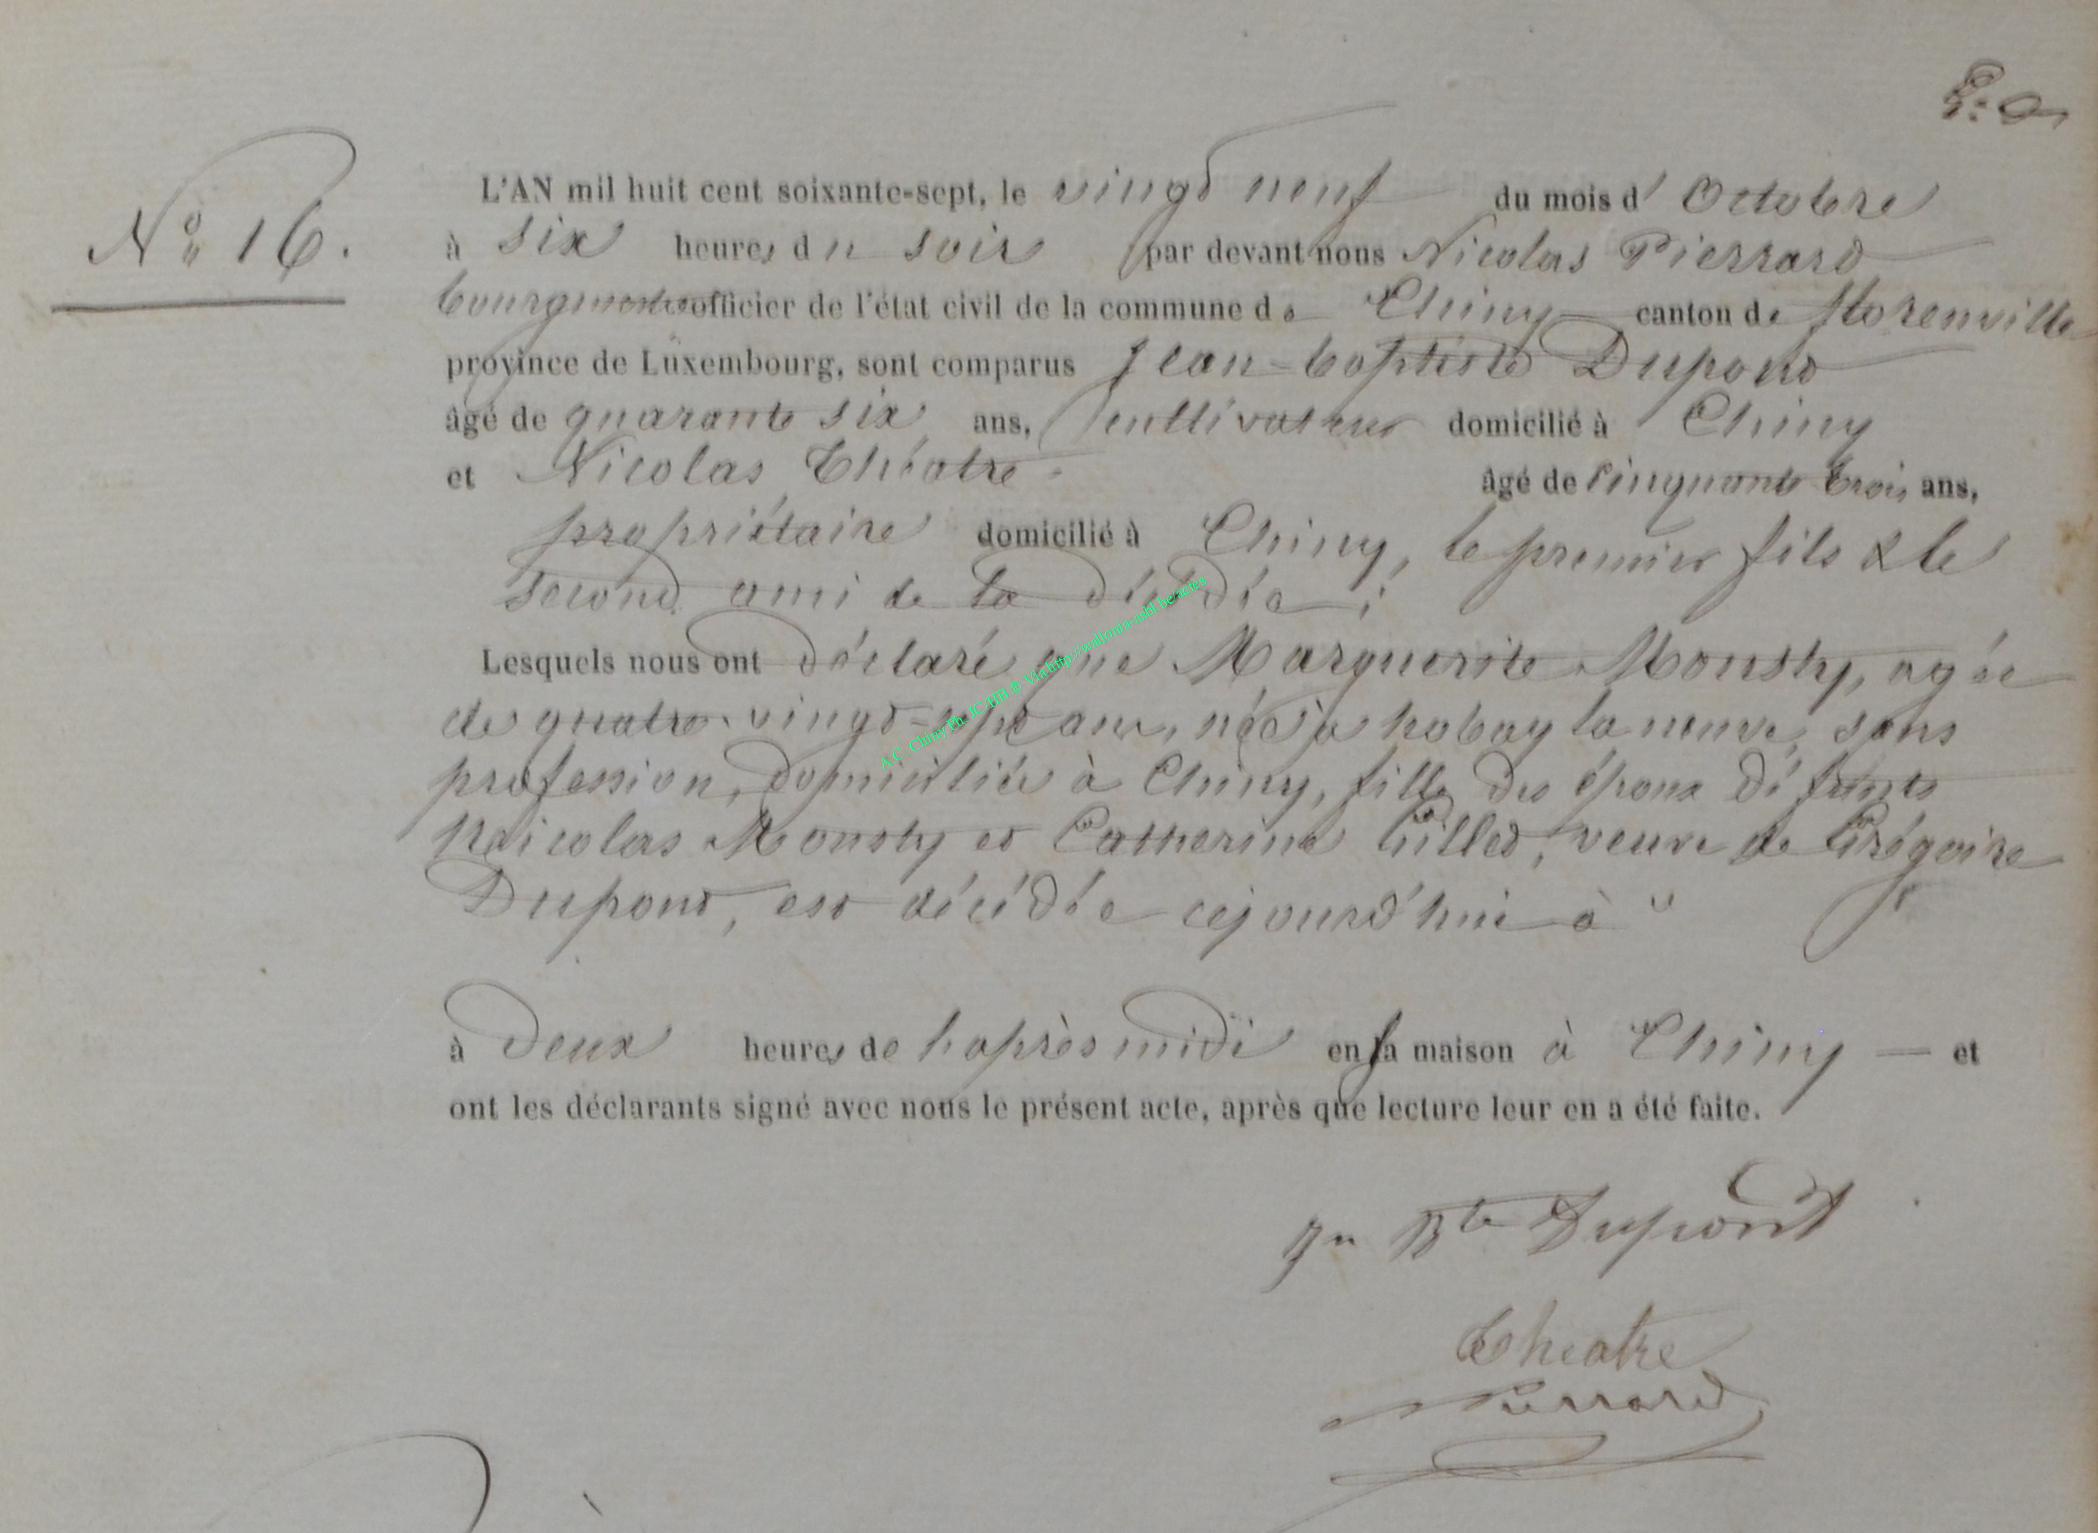 N° 16.
L'AN mil huit cent soixante-sept, le vingt neuf du mois d' Octobre
à six heures du soir par devant nous Nicolas Pierrard
bourgmestre officier de l'état civil de la commune de Chiny canton de florenville
province de Luxembourg, sont comparus Jean-baptiste Dupont
âgé de quarante six ans, cultivateur domicilié à Chiny
et Nicolas Théatre âgé de cinquante trois ans,
propriétaire domicilié à Chiny, le premier fils & le
second ami de la décédée;
Lesquels nous ont déclaré que Marguerite Mousty, agée
de quatre-vingt-sept ans, née à habay la neuve, sans
profession, domiciliée à Chiny, fille des époux défunts
Nicolas Mousty et Catherine Gillet, veuve de Grégoire
Dupont, est décédée cejourd'hui à "
à deux heures de l'après midi en sa maison à Chiny — et
ont les déclarants signé avec nous le présent acte, après que lecture leur en a été faite.
Jn Bte Dupont
Theatre
Pierrard